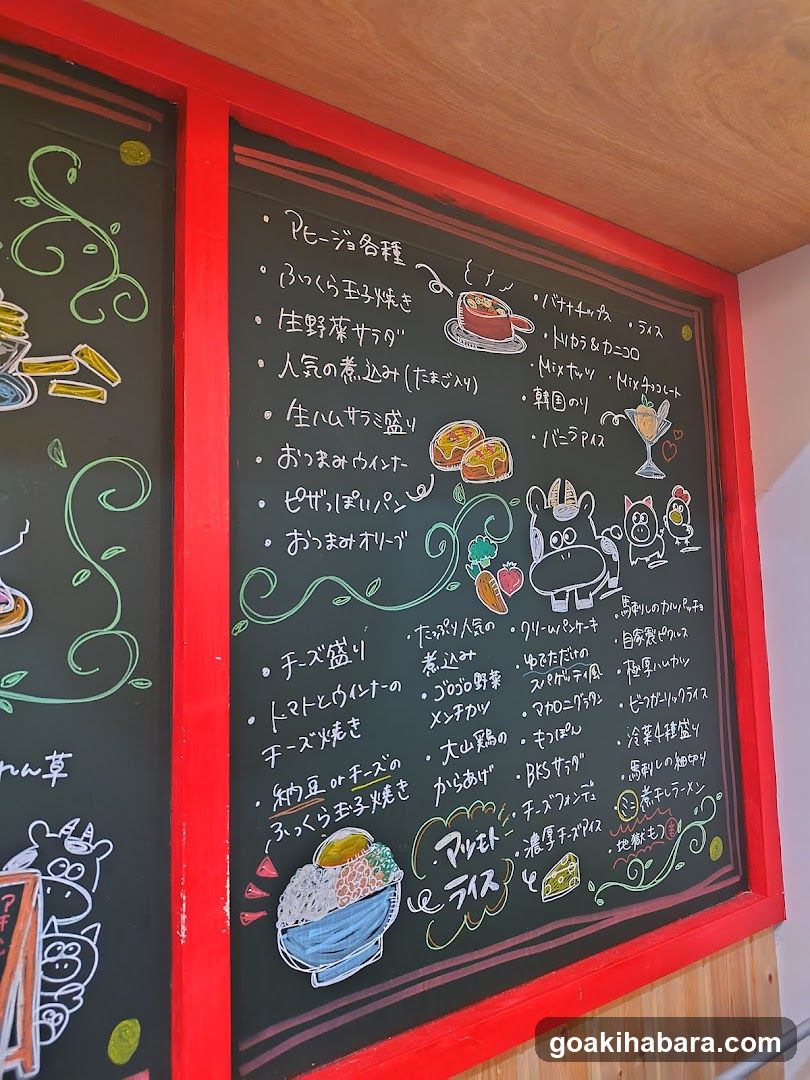 ・アヒージョ各種
・ふっくら玉子焼き
・生野菜サラダ
・人気の煮込み(たまご入り)
・生ハムサラミ盛り
・おつまみウインナー
・ピザっぽいパン
・おつまみオリーブ
・バナナチップス
・ライス
・トリカラ&カニコロ
・Mixナッツ
・Mixチョコレート
・韓国のり
・バニラアイス
・チーズ盛り
・トマトとウインナーの
チーズ焼き
・納豆orチーズの
ふっくら玉子焼き
・たっぷり人気の
煮込み
・ゴロゴロ野菜
メンチカツ
・大山鶏の
からあげ
・マツモト
ライス
・クリームパンケーキ
・ゆでただけの
スパゲッティ風
・マカロニグラタン
・もつぽん
・BKSサラダ
・チーズフォンデュ
・濃厚チーズアイス
・馬刺しのカルパッチョ
・自家製ピクルス
・極厚ハムカツ
・ビーフガーリックライス
・冷菜4種盛り
・馬刺しの細切り
・ミニ煮干しラーメン
・地獄もつ
れん草
goakihabara.com